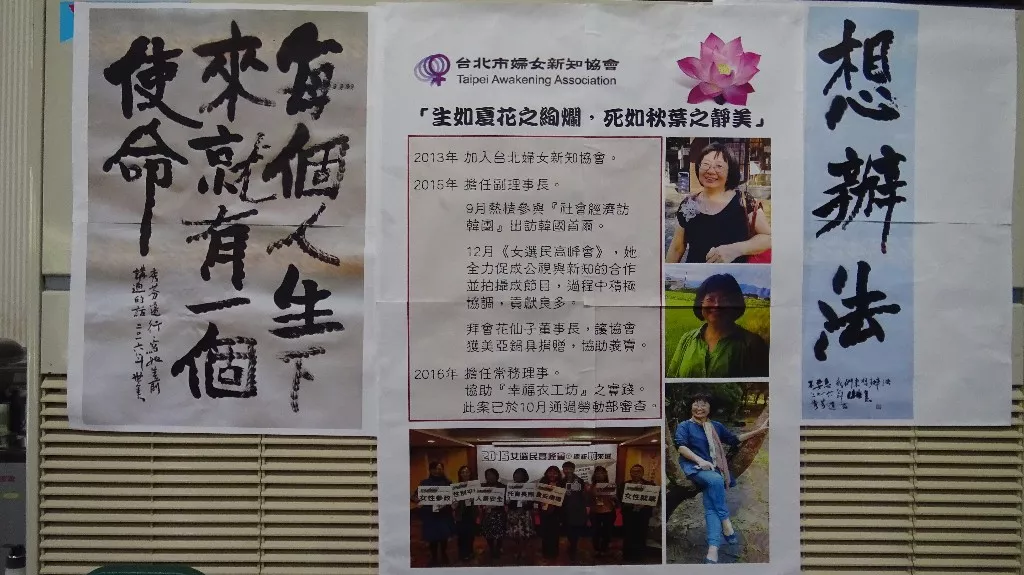 每個人生下
來就有一個
使命
台北市婦女新知協會
Taipei Awakening Association
「生如夏花之絢爛，死如秋葉之靜美」
2013年 加入台北婦女新知協會。
2015年 擔任副理事長。
9月熱情參與『社會經濟訪
韓團』出訪韓國首爾。
12月《女選民高峰會》，她
全力促成公視與新知的合作
並拍攝成節目，過程中積極
協調，貢獻良多。
拜會花仙子董事長，讓協會
獲美亞鍋具捐贈，協助義賣。
2016年 擔任常務理事。
協助『幸福衣工坊』之審議。
此案已於10月通過勞動部審查。
2015女選民高峰會
女性參政
人身安全
托育長照
女性就業
想辦法